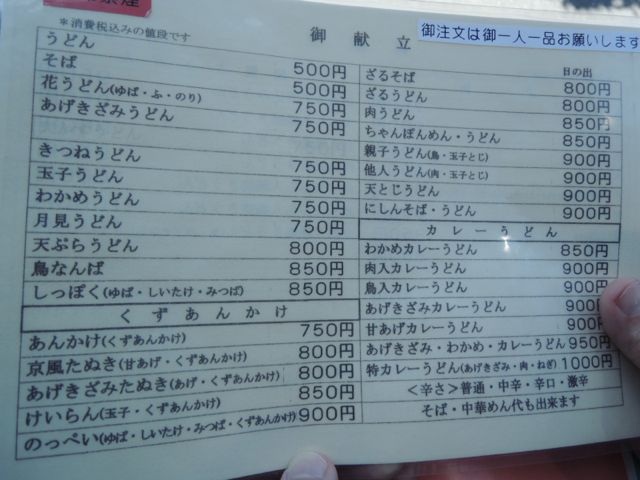 *消費税込みの値段です
御献立
御注文は御一人一品お願いします
うどん 500円
そば 500円
花うどん(ゆば・ふ・のり) 750円
あげきざみうどん 750円
きつねうどん 750円
玉子うどん 750円
わかめうどん 750円
月見うどん 750円
天ぷらうどん 800円
鳥なんば 850円
しっぽく(ゆば・しいたけ・みつば) 850円
くずあんかけ
あんかけ(くずあんかけ) 750円
京風たぬき(甘あげ・くずあんかけ) 800円
あげきざみたぬき(あげ・くずあんかけ) 800円
けいらん(玉子・くずあんかけ) 850円
のっぺい(ゆば・しいたけ・みつば・くずあんかけ) 900円
日の出
ざるそば 800円
ざるうどん 800円
肉うどん 850円
ちゃんぽんめん・うどん 850円
親子うどん(鳥・玉子とじ) 900円
他人うどん(肉・玉子とじ) 900円
天とじうどん 900円
にしんそば・うどん 900円
カレーうどん
わかめカレーうどん 850円
肉入カレーうどん 900円
鳥入カレーうどん 900円
あげきざみカレーうどん 900円
甘あげカレーうどん 900
あげきざみ・わかめ・カレーうどん 950円
特カレーうどん(あげきざみ・肉・ねぎ) 1000円
<辛さ>普通・中辛・辛口・激辛
そば・中華めん代も出来ます